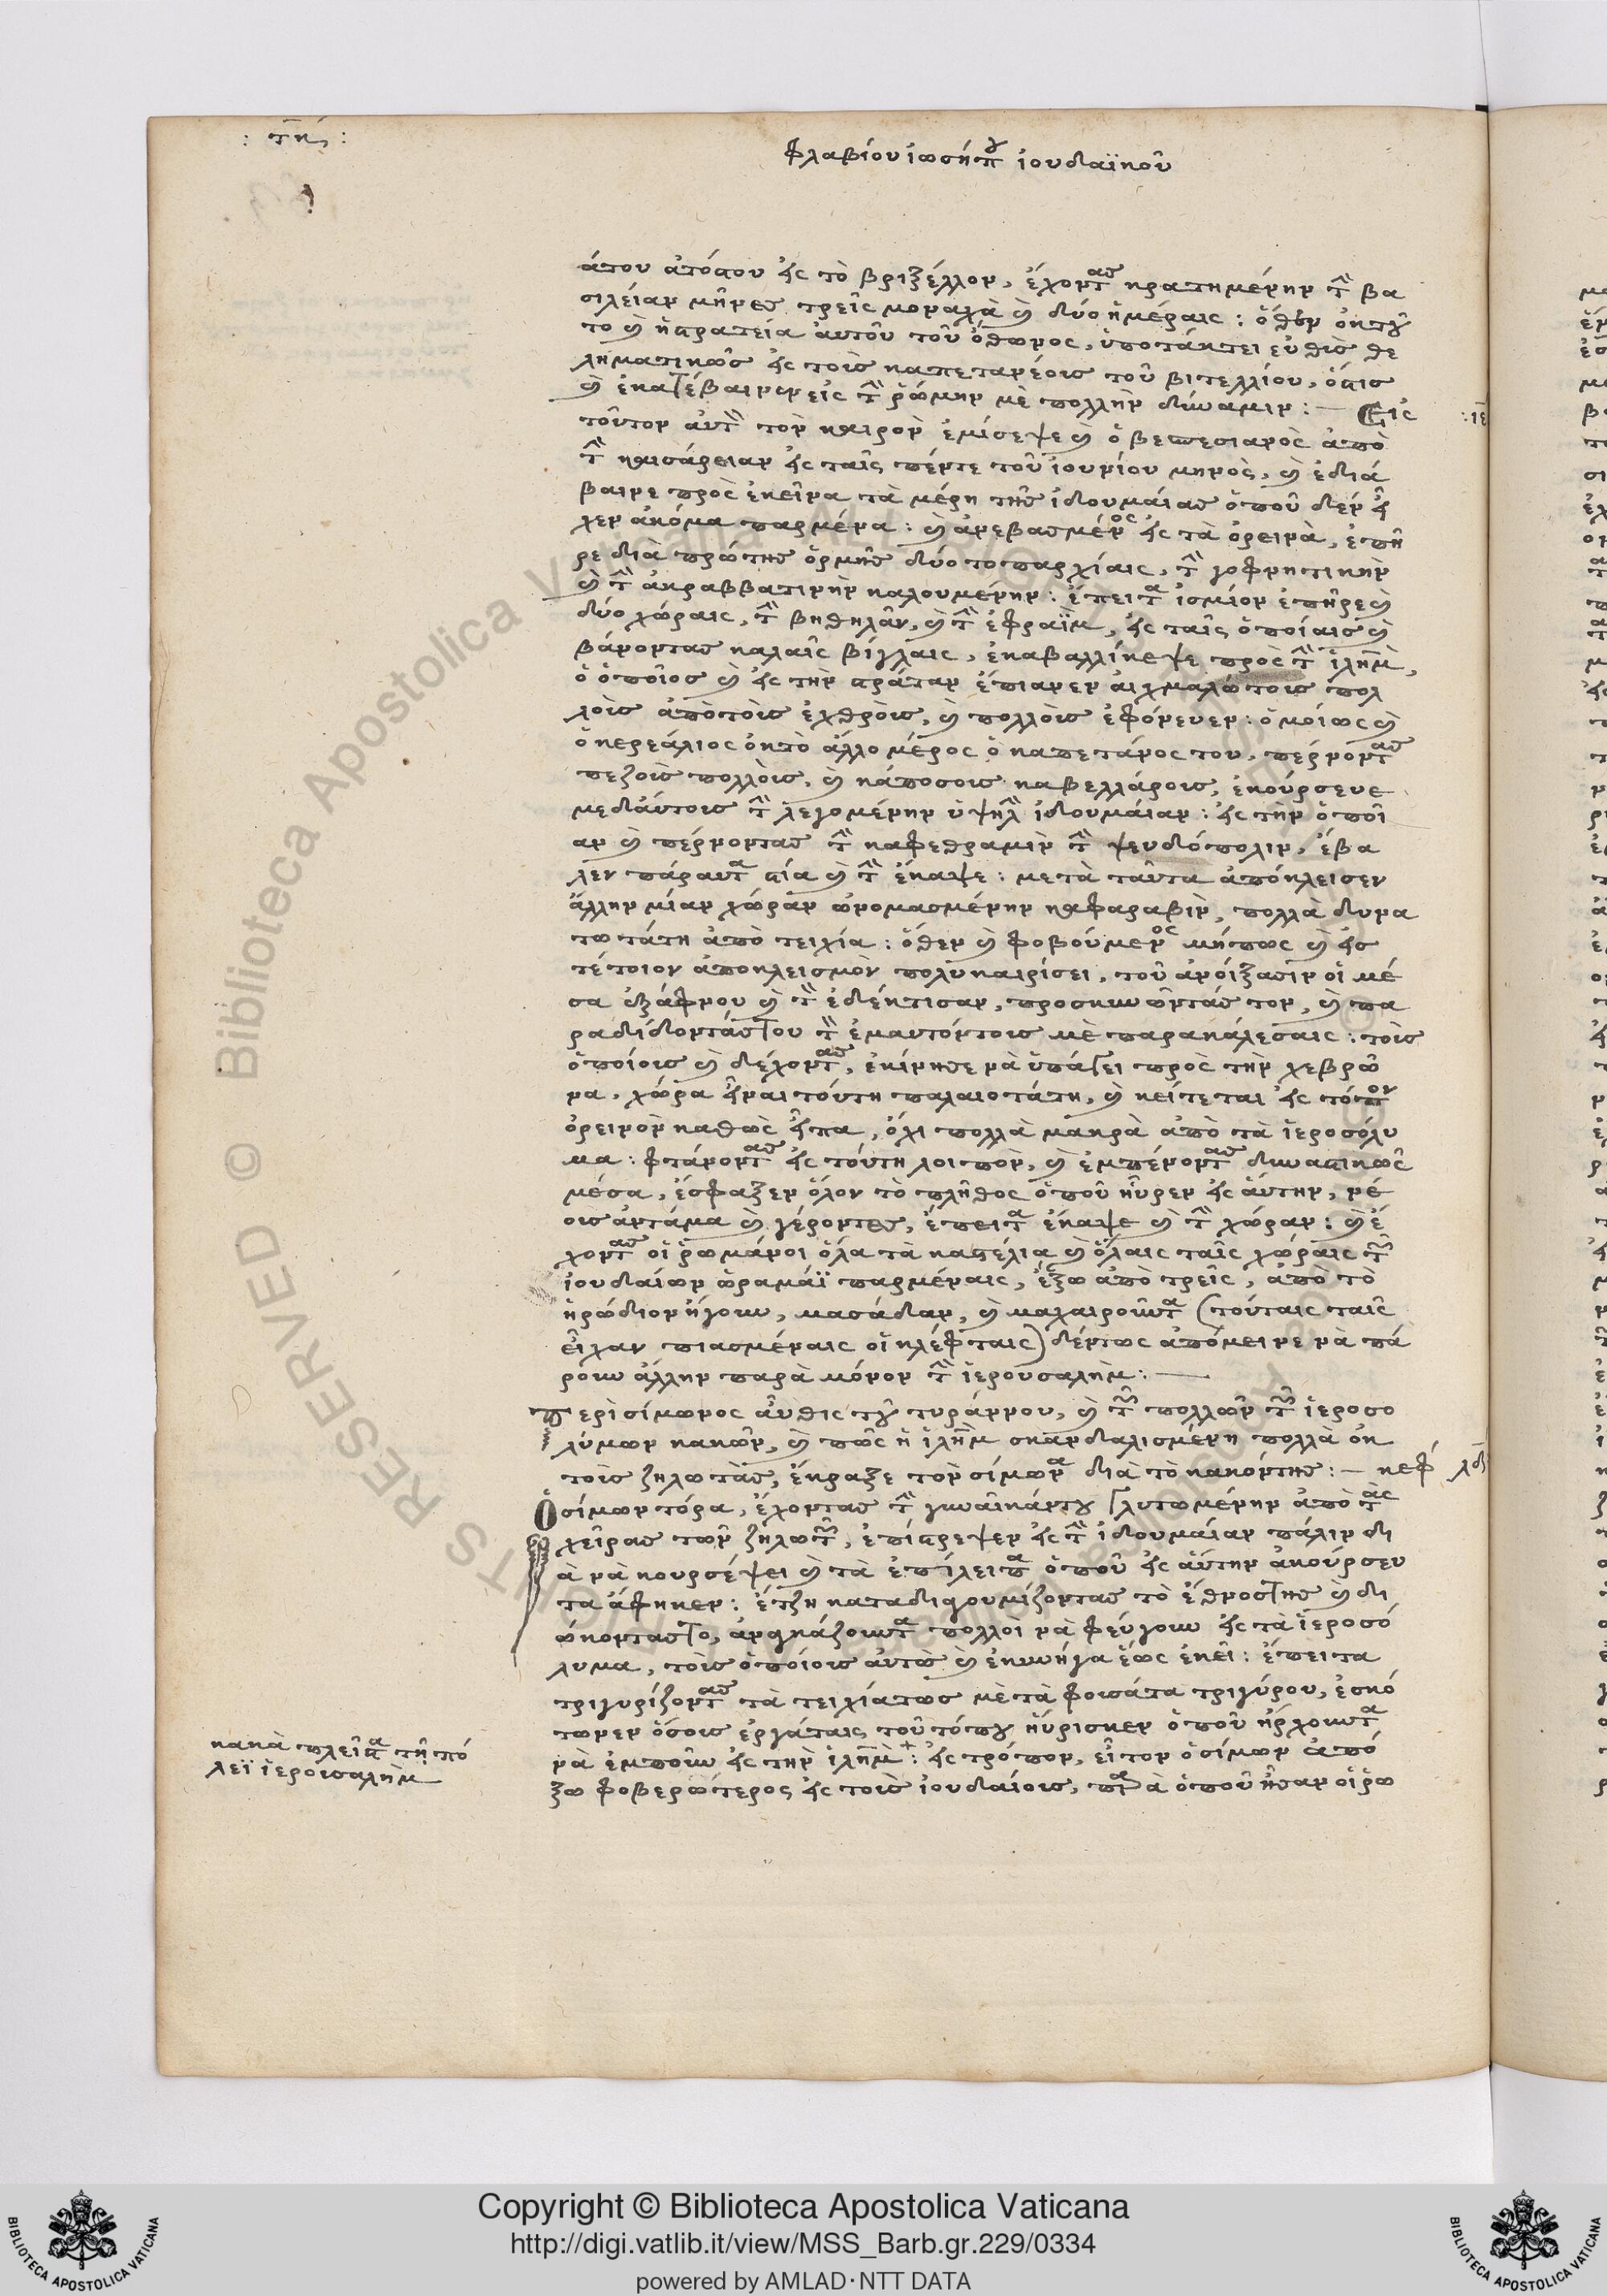 : τκϛ :
φλαβίου ἰωσήπου ἰουδαϊκοῦ
άτου ἀτόςου εἰς τὸ βριξέλλον, ἔχοντας κρατημένην τὴν βα
σιλείαν μῆνες τρεῖς μοναχὰ καὶ δύο ἡμέραις : ὅθεν ἐκ τού
το καὶ ἡ στρατεία αὐτοῦ τοῦ ὄθωνος, ὑποτάκτει εὐθὶς θε
ληματικῶς εἰς τοὶς καπετανέοις τοῦ βιτελλίου, ὅστις
καὶ ἐκατέβαινεν εἰς τὴν ῥώμην μὲ πολλὴν δύναμιν : — Εἰς
τοῦτον αὐτὸν τὸν καιρὸν ἐμίσεψε καὶ ὁ βεσπεσιανὸς ἀπὸ
τὴν καισάρειαν εἰς ταῖς πέντε τοῦ ἰουνίου μηνὸς, καὶ ἐδιά
βαινε πρὸς ἐκεῖνα τὰ μέρη τῆς ἰδουμαίας ὁποῦ δὲν εἶ
χεν ἀκόμα παρμένα : καὶ ἀνεβασμένος εἰς τὰ ὀρεινὰ, ἐπῆ
ρε διὰ πρώτης ὁρμῆς δύο τοπαρχίαις, τὴν γοφνητικὴν
καὶ τὴν ἀκραββατινὴν καλουμένην : ἔπειτα ἰσμίον ἐπῆρε καὶ
δύο χώραις, τὴν βηθηλᾶν, καὶ τὴν ἐφραῒμ, εἰς ταῖς ὁποίαις καὶ
βάνοντας καλαῖς βίγλαις, ἐκαβαλλίκεψε πρὸς τὴν ἱλὴμ,
ὁ ὁποῖος καὶ εἰς τὴν στράταν ἔπιανεν αἰχμαλώτοις πολ
λοὶς ἀπὸ τοὶς ἐχθροὶς, καὶ πολλοὶς ἐφόνευεν : ὁμοίως καὶ
ὁ κερεάλιος ἐκ τὸ ἄλλο μέρος ὁ καπετάνος του, πέρνοντας
πεζοὶς πολλοὶς, καὶ κάποσοις καβελλάροις, ἐκούρσευε
μεδαύτοις τὴν λεγομένην ὑψηλὴν ἰδουμαίαν : εἰς τὴν ὁποῖ
αν καὶ πέρνοντας τὴν καφεθραμὶν τὴν ψευδόπολιν, ἔβα
λεν πάραυτα στία καὶ τὴν ἔκαψε : μετὰ ταῦτα ἀπόκλεισεν
ἄλλην μίαν χώραν ὠνομασμένην καφαραβὶν, πολλὰ δυνα
τωτάτη ἀπὸ τειχία : ὅθεν καὶ φοβούμενος μήπως καὶ εἰς
τέτοιον ἀποκλεισμὸν πολυκαιρίσει, τοῦ ἀνοίξασιν οἱ μέ
σα ἐξάφνου καὶ τὴν ἐδέκτισαν, προσκυνῶντάς τον, καὶ πα
ραδίδοντάς του τὴν ἐμαυτόντοις μὲ παρακάλεσαις : τοὶς
ὁποίοις καὶ δέχοντας, ἐκίνησε νὰ ὑπάγει πρὸς τὴν χεβρῶ
να, χώρα εἶναι τούτη παλαιοτάτη, καὶ κείτεται εἰς τόπον
ὀρεινὸν καθὼς εἶπα, ὄχι πολλὰ μακρὰ ἀπὸ τὰ ἱεροσόλυ
μα : φτάνοντας εἰς τούτη λοιπὸν, καὶ ἐμπένοντας δυναστικῶς
μέσα, ἔσφαξεν ὅλον τὸ πλῆθος ὁποῦ ηὗρεν εἰς αὔτην, νέ
οις ἀντάμα καὶ γέροντες, ἔπειτα ἔκαψε καὶ τὴν χώραν : καὶ ἔ
χοντας οἱ ῥωμάνοι ὅλα τὰ καστέλια καὶ ὅλαις ταῖς χώραις τῶν
ἰουδαίων ὡραμάϊ παρμέναις, ἔξω ἀπὸ τρεῖς, ἀπὸ τὸ
ἡρώδιον ἤγουν, μασάδαν, καὶ μαχαιροῦντα (τούταις ταῖς
εἶχαν πιασμέναις οἱ κλέφταις) δέντως ἀπόμεινε νὰ πά
ρουν ἄλλην παρὰ μόνον τὴν ἱερουσαλὴμ : —
περὶ σίμωνος αὖθις τοῦ τυράννου, καὶ τῶν πολλῶν τῶν ἱεροσο
λύμων κακῶν, καὶ πῶς ἡ ἱλὴμ σκανδαλισμένη πολλὰ ἐκ
τοὶς ζηλωτὰς, ἔκραξε τὸν σίμωνα διὰ τὸ κακόντης : — κεφ λδ
Ὁ σίμων τόρα, ἔχοντας τὴν γυναῖκάντου γλυτωμένην ἀπὸ τὰς
χεῖρας τῶν ζηλωτῶν, ἐπίστρεψεν εἰς τὴν ἰδουμαίαν πάλιν δι
ὰ νὰ κουρσέψει καὶ τὰ ἐπίλειπα ὁποῦ εἰς αὔτην ἀκούρσευ
τα ἄφηκεν : ἔτζη καταδιγουμίζοντας τὸ ἔθνοςτης καὶ δι
ώκοντάςτο, ἀναγκάζουντα πολλοὶ νὰ φεύγουν εἰς τὰ ἱεροσό
λυμα, τοὶς ὁποίοις αὐτὸς καὶ ἐκυνήγα ἕως ἐκεῖ : ἔπειτα
τριγυρίζοντας τὰ τειχίατως μὲ τὰ φοσάτα τριγύρου, ἐσκό
τωνεν ὅσοις ἐργάταις τοῦ τόπου ηὕρισκεν ὁποῦ ἤρχουντα
νὰ ἐμποῦν εἰς τὴν ἱλὴμ + : εἰς τρόπον, εἶτον ὁ σίμων ἀπό
ξω φοβερώτερος εἰς τοὶς ἰουδαίοις, παρὰ ὁποῦ ἦσαν οἱ ῥω
κακὰ πλεῖστα τῇ πό
λεϊ ἱερουσαλὴμ
Copyright © Biblioteca Apostolica Vaticana
http://digi.vatlib.it/view/MSS_Barb.gr.229/0334
powered by AMLAD·NTT DATA